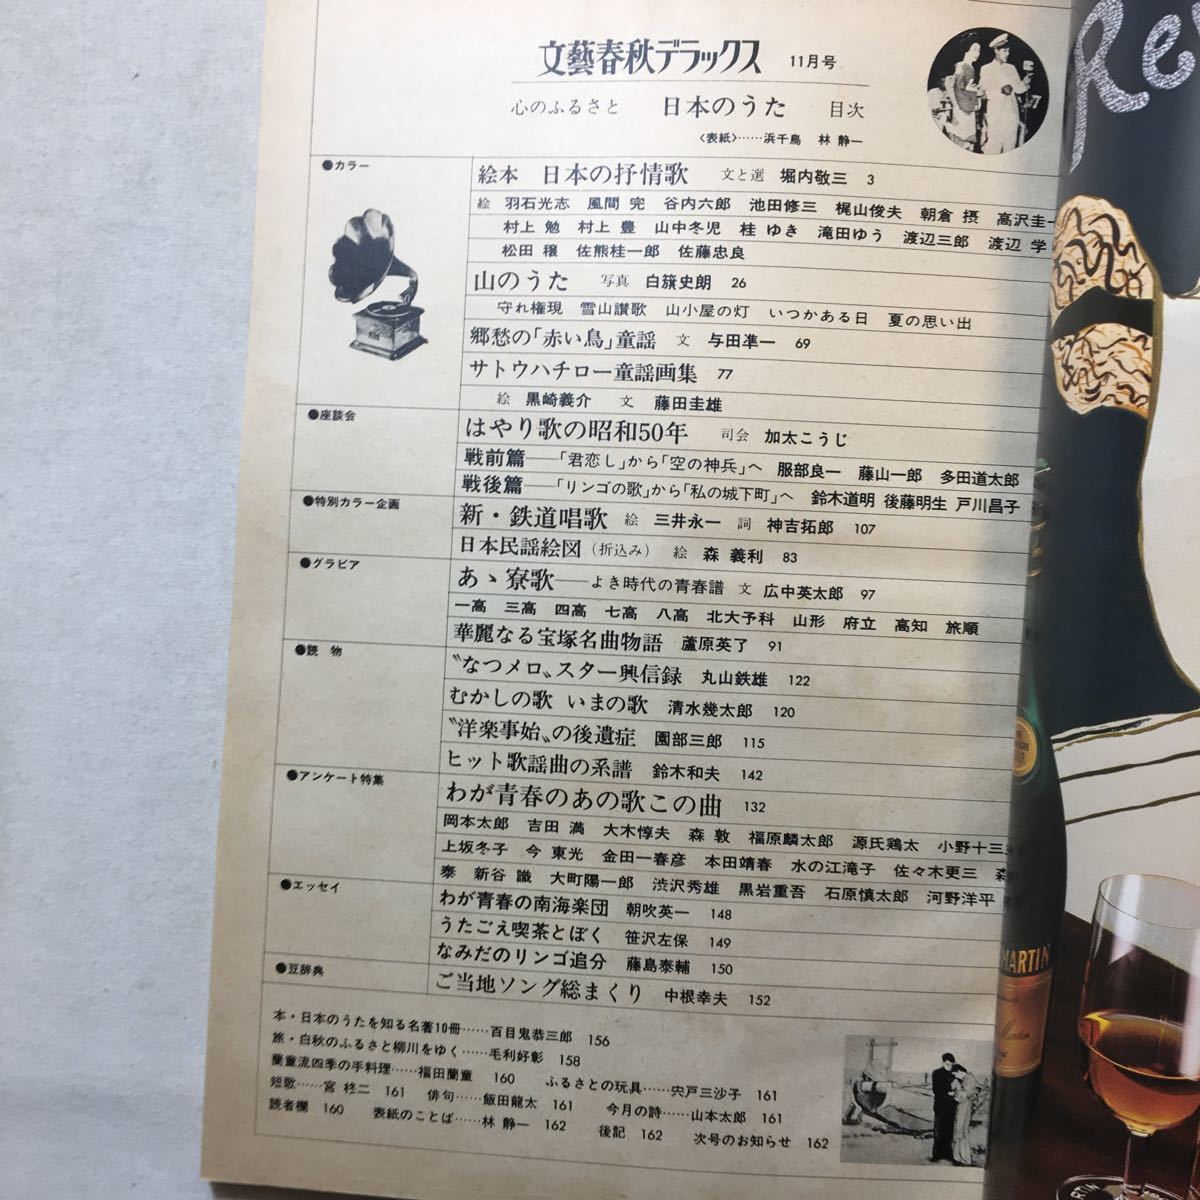 文藝春秋デラックス 11月号
心のふるさと 日本のうた 目次
〈表紙〉……浜千鳥 林 静一
●カラー
絵本 日本の抒情歌 文と選 堀内敬三 3
絵 羽石光志 風間 完 谷内六郎 池田修三 梶山俊夫 朝倉 摂 高沢圭一
村上 勉 村上 豊 山中冬児 桂 ゆき 滝田ゆう 渡辺三郎 渡辺 学
松田 穣 佐熊桂一郎 佐藤忠良
山のうた 写真 白籏史朗 26
守れ権現 雪山讃歌 山小屋の灯 いつかある日 夏の思い出
郷愁の「赤い鳥」童謡 文 与田凖一 69
サトウハチロー童謡画集 77
絵 黒崎義介 文 藤田圭雄
●座談会
はやり歌の昭和50年 司会 加太こうじ
戦前篇──「君恋し」から「空の神兵」へ 服部良一 藤山一郎 多田道太郎
戦後篇──「リンゴの歌」から「私の城下町」へ 鈴木道明 後藤明生 戸川昌子
●特別カラー企画
新・鉄道唱歌 絵 三井永一 詞 神吉拓郎 107
日本民謡絵図（折込み） 絵 森 義利 83
●グラビア
あゝ寮歌──よき時代の青春譜 文 広中英太郎 97
一高 三高 四高 七高 八高 北大予科 山形 府立 高知 旅順
華麗なる宝塚名曲物語 蘆原英了 91
●読 物
〝なつメロ〟スター興信録 丸山鉄雄 122
むかしの歌 いまの歌 清水幾太郎 120
〝洋楽事始〟の後遺症 園部三郎 115
ヒット歌謡曲の系譜 鈴木和夫 142
●アンケート特集
わが青春のあの歌この曲 132
岡本太郎 吉田 満 大木惇夫 森 敦 福原麟太郎 源氏鶏太 小野十三
上坂冬子 今 東光 金田一春彦 本田靖春 水の江滝子 佐々木更三 森
泰 新谷 識 大町陽一郎 渋沢秀雄 黒岩重吾 石原慎太郎 河野洋平
●エッセイ
わが青春の南海楽団 朝吹英一 148
うたごえ喫茶とぼく 笹沢左保 149
なみだのリンゴ追分 藤島泰輔 150
●豆辞典
ご当地ソング総まくり 中根幸夫 152
本・日本のうたを知る名著10冊……百目鬼恭三郎 156
旅・白秋のふるさと柳川をゆく……毛利好彰 158
蘭童流四季の手料理……福田蘭童 160 ふるさとの玩具……宍戸三沙子 161
短歌……宮 柊二 161 俳句……飯田龍太 161 今月の詩……山本太郎 161
読者欄 160 表紙のことば……林 静一 162 後記 162 次号のお知らせ 162
Re
MARTIN
Martin